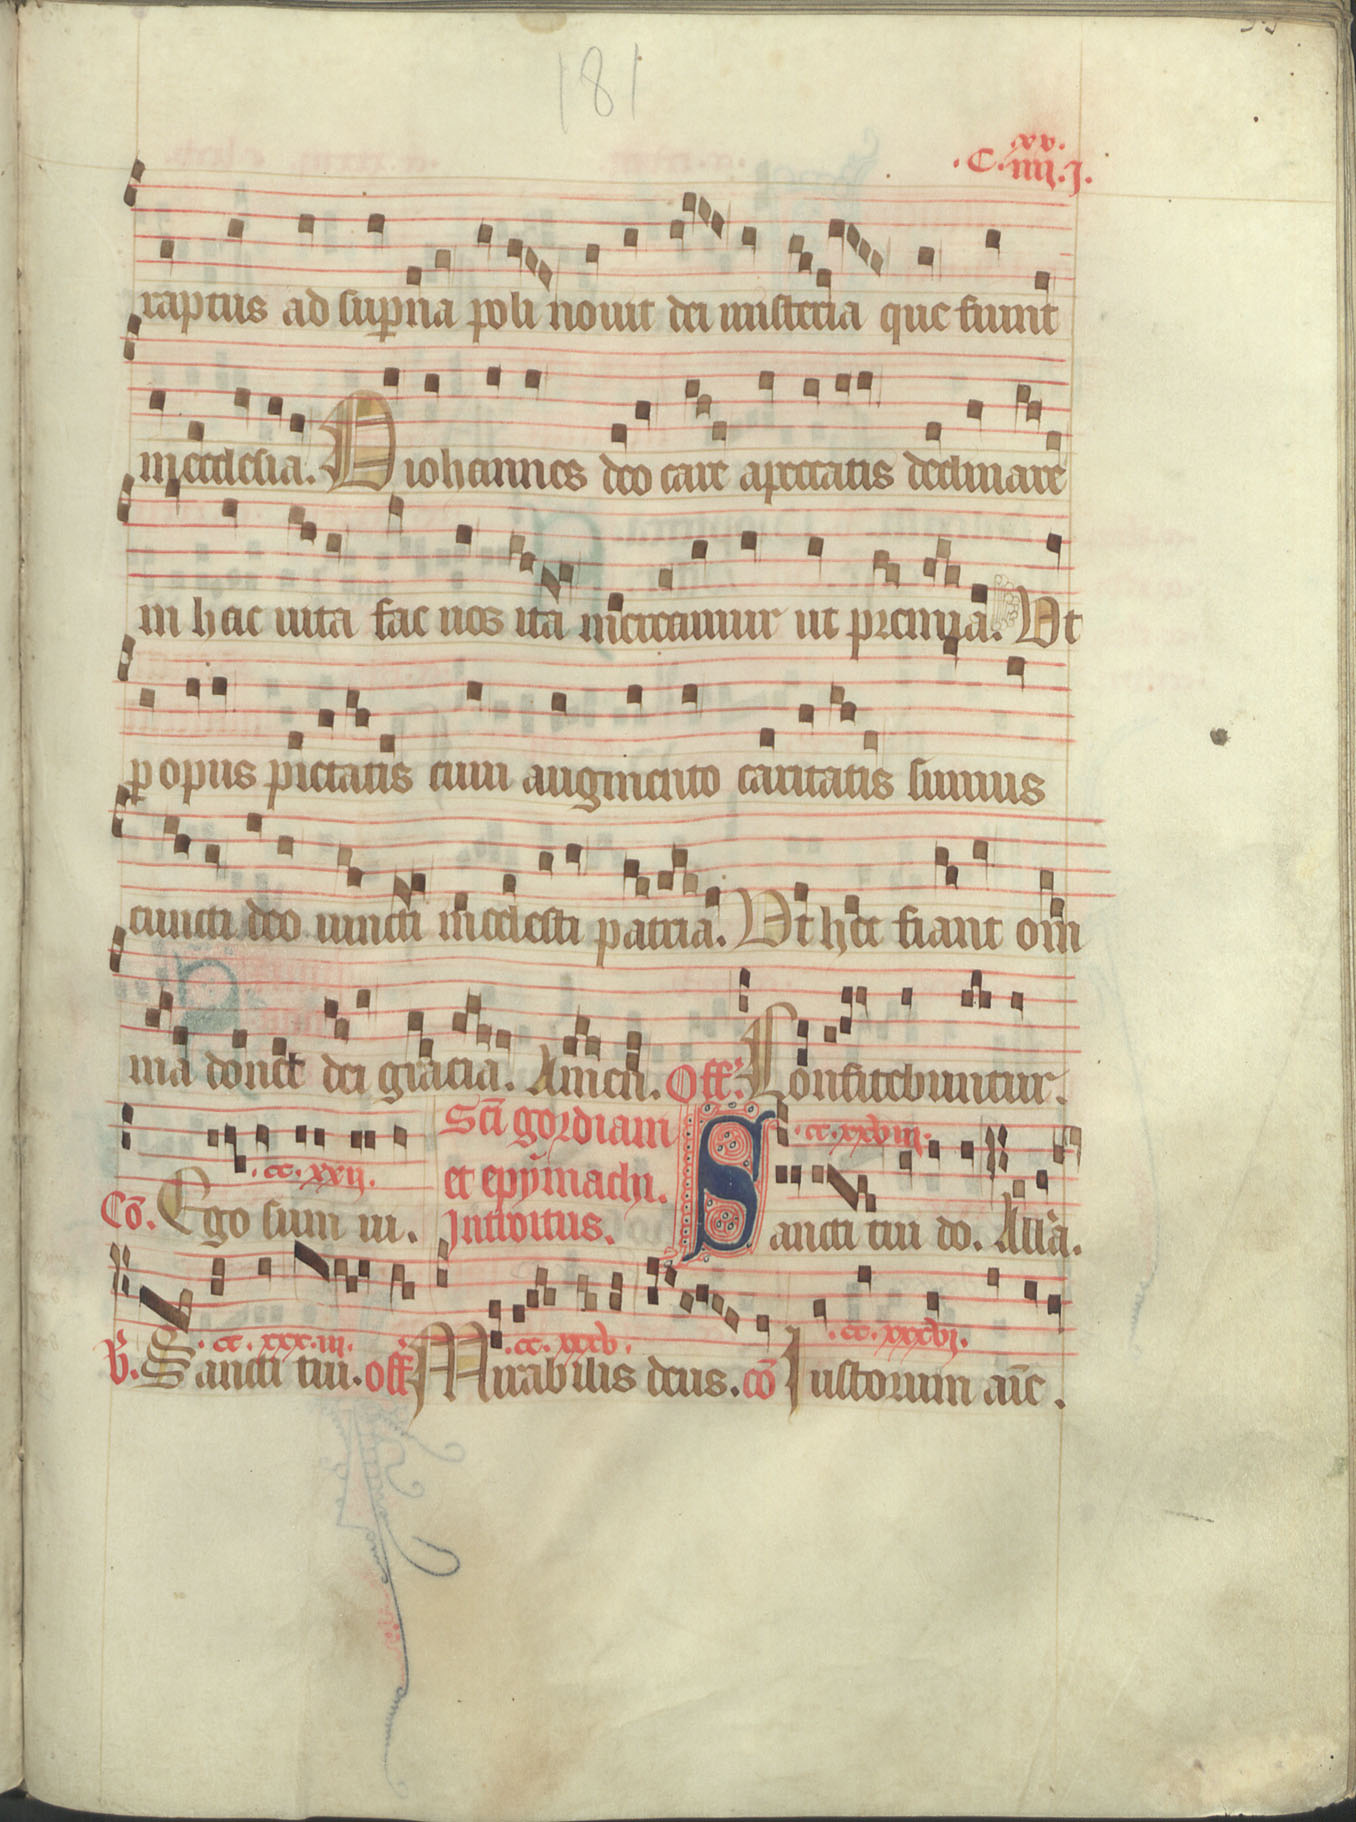 181
.C.
xv.
iiij.j.
raptus ad sup̱na poli nouit dei misteria que fiunt
in ecclesia. O iohannes deo care a peccatis declinare
in hac uita fac nos ita mereamur ut premia. Vt
ꝑ opus pietatis cum augmento caritatis simus
cuncti deo iuncti in celesti patria. Vt hec fiant om̄
nia donet dei gracia. Amen. Off̄. Confitebuntur.
.cc.xxij.
Cō. Ego sum ui.
Sc̄i gordiani
et epymachi.
Introitus.
.cc.xxviij.
Sancti tui do. All̄a.
.cc.xxx.iij.
.cc.xxxv.
.cc.xxxvj.
V̄. Sancti tui. off̄ Mirabilis deus. cō Iustorum aīe.